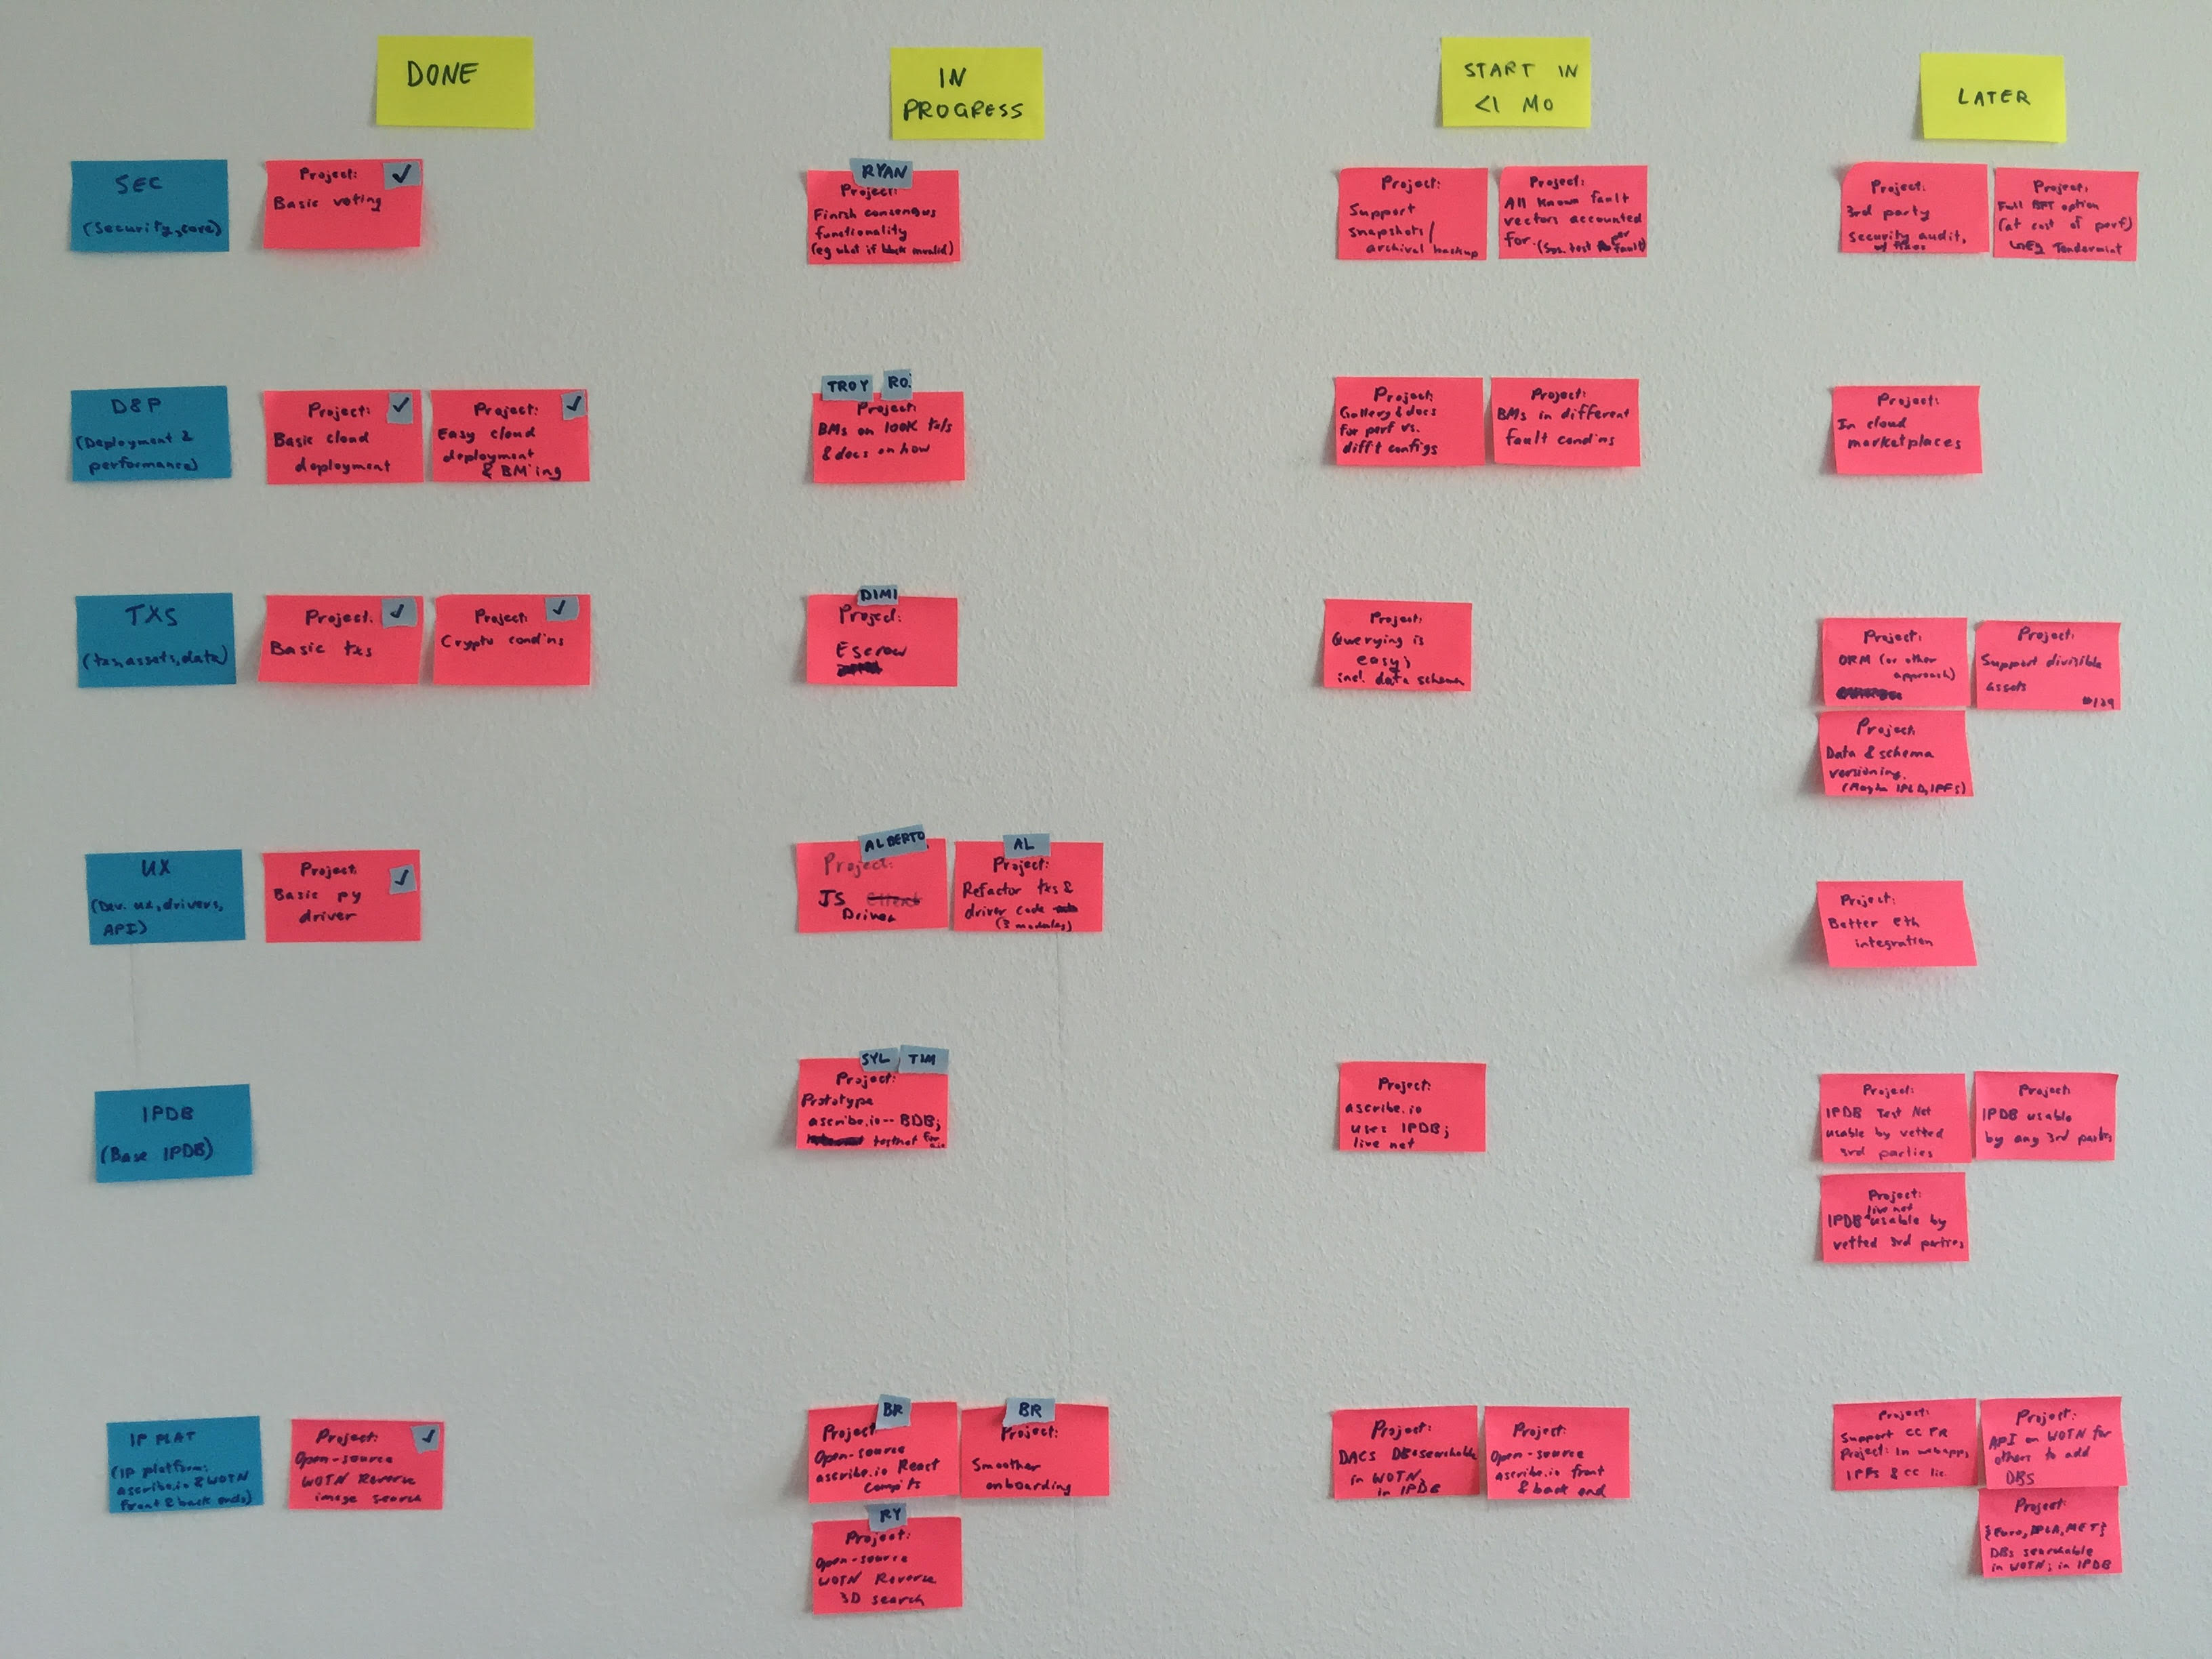 DONE
IN
PROGRESS
START IN
<1 MO
LATER
SEC
(Security, core)
✓
Project:
Basic voting
RYAN
Project:
Finish consensus
functionality
(eg what if block invalid)
Project:
Support
snapshots/
archival backup
Project:
All known fault
vectors accounted
for. (Sys. test per fault)
Project:
3rd party
Security audit,
w/ fixes
Project:
Full BFT option
(at cost of perf)
Eg Tendermint
D&P
(Deployment &
performance)
✓
Project:
Basic cloud
deployment
✓
Project:
Easy cloud
deployment
& BM'ing
TROY RO.
Project:
BMs on 100K tx/s
& docs on how
Project:
Gallery & docs
for perf vs.
diff't configs
Project:
BMs in different
fault cond'ns
Project:
In cloud
marketplaces
TXS
(txn, assets, data)
✓
Project.
Basic txs
✓
Project:
Crypto cond'ns
DIMI
Project:
Escrow
Project:
Querying is
easy;
incl. data schema
Project:
ORM (or other
approach)
Project:
Support divisible
assets
#129
Project:
Data & schema
versioning.
(Maybe IPLD, IPFS)
UX
(Dev. ux, drivers,
API)
✓
Project:
Basic py
driver
ALBERTO
Project:
JS Client
Driver
AL
Project:
Refactor txs &
driver code
(3 modules)
Project:
Better eth
integration
IPDB
(Base IPDB)
SYL TIM
Project:
Prototype
ascribe.io -- BDB;
testnet for
Project:
ascribe.io
uses IPDB;
live net
Project:
IPDB Test Net
usable by vetted
3rd parties
Project:
IPDB usable
by any 3rd parties
Project:
live net
IPDB usable by
vetted 3rd parties
IP PLAT
(IP platform:
ascribe.io & WOTN
front & back ends)
✓
Project:
Open-source
WOTN Reverse
image search
BR
Project
Open-source
ascribe.io React
Comp'ts
BR
Project:
Smoother
onboarding
RY
Project:
Open-source
WOTN Reverse
3D search
Project:
DACS DB searchable
in WOTN,
in IPDB
Project:
Open-source
ascribe.io front
& back end
Project:
Support CC PR
Project: In webapp,
IPFS & CC lic.
Project:
API on WOTN for
others to add
DBS
Project:
{Euro, DPLA, MET}
DBs searchable
in WOTN; in IPDB